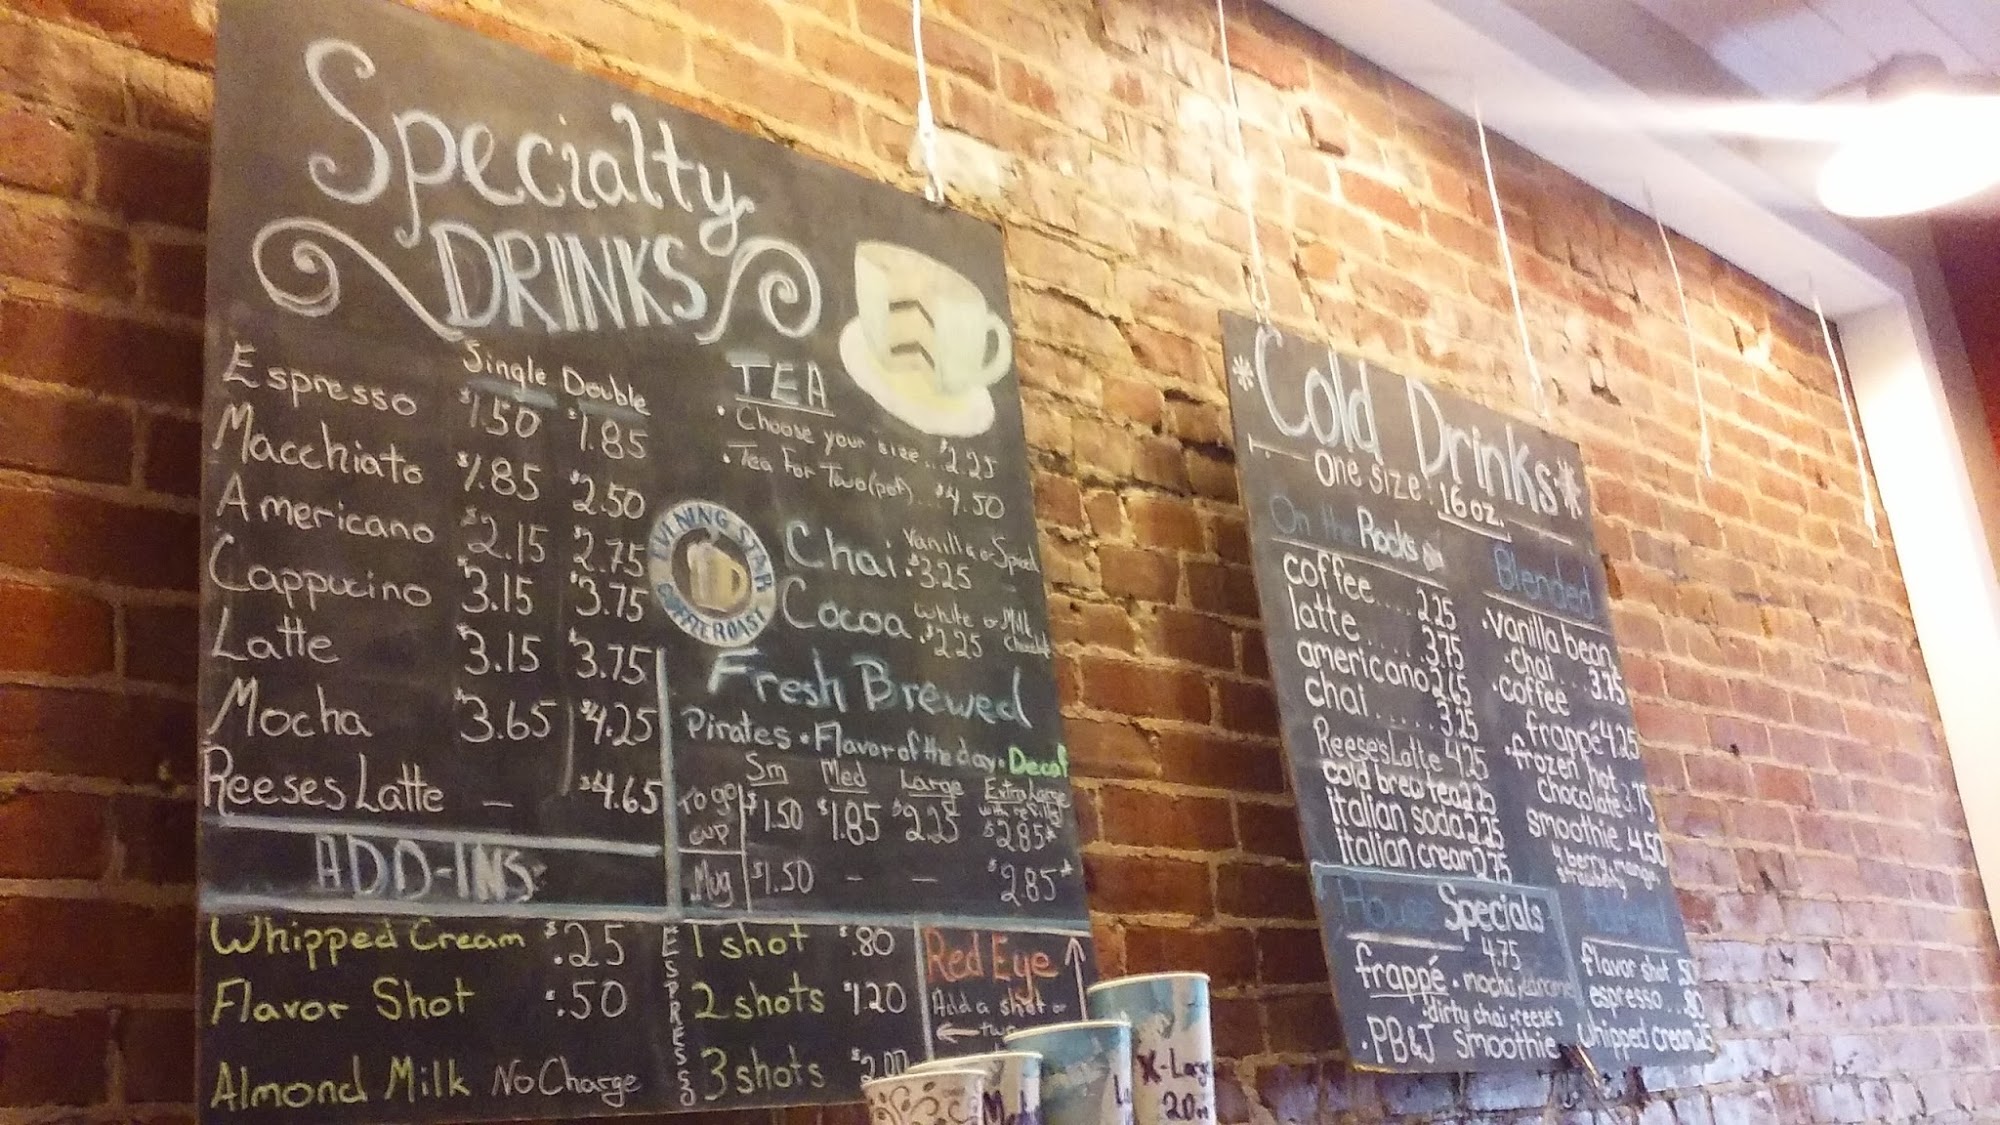 Specialty
DRINKS
Single Double
Espresso $1.50 $1.85
Macchiato $1.85 $2.50
Americano $2.15 $2.75
Cappucino $3.15 $3.75
Latte $3.15 $3.75
Mocha $3.65 $4.25
Reeses Latte — $4.65
TEA
• Choose your size... $2.25
• Tea For Two (pot)... $4.50
EVENING STAR
COFFEE ROAST
Chai • Vanilla or Spiced
• $3.25
Cocoa White or Milk Chocolate
• $2.25
Fresh Brewed
Pirates • Flavor of the day • Decaf
Sm Med Large Extra Large
with refills
To go cup $1.50 $1.85 $2.25 $2.85*
Mug $1.50 — — $2.85*
ADD-INS:
Whipped Cream $.25
Flavor Shot $.50
Almond Milk No Charge
ESPRESSO
1 shot $.80
2 shots $1.20
3 shots $2.00
Red Eye
Add a shot or
two
X-Large
20oz
*Cold Drinks*
One size: 16 oz.
On the Rocks
coffee.... 2.25
latte...... 3.75
americano 2.65
chai...... 3.25
Reese's Latte 4.25
cold brew tea 2.25
italian soda 2.25
italian cream 2.75
Blended
• vanilla bean
• chai... 3.75
• coffee
frappé 4.25
• frozen hot
chocolate 3.75
smoothie 4.50
4 berry, mango
strawberry
House Specials
4.75
frappé • mocha, caramel
• dirty chai • reese's
• PB&J smoothie
flavor shot .50
espresso... .80
whipped cream .25